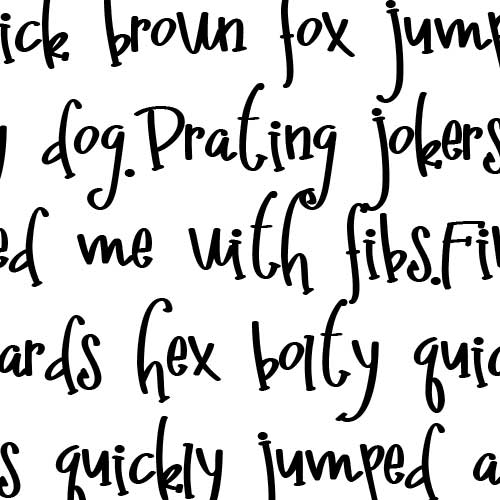 ick brown fox jump
y dog. Prating jokers
ed me with fibs. Fi
ards hex bolty quic
s quickly jumped a